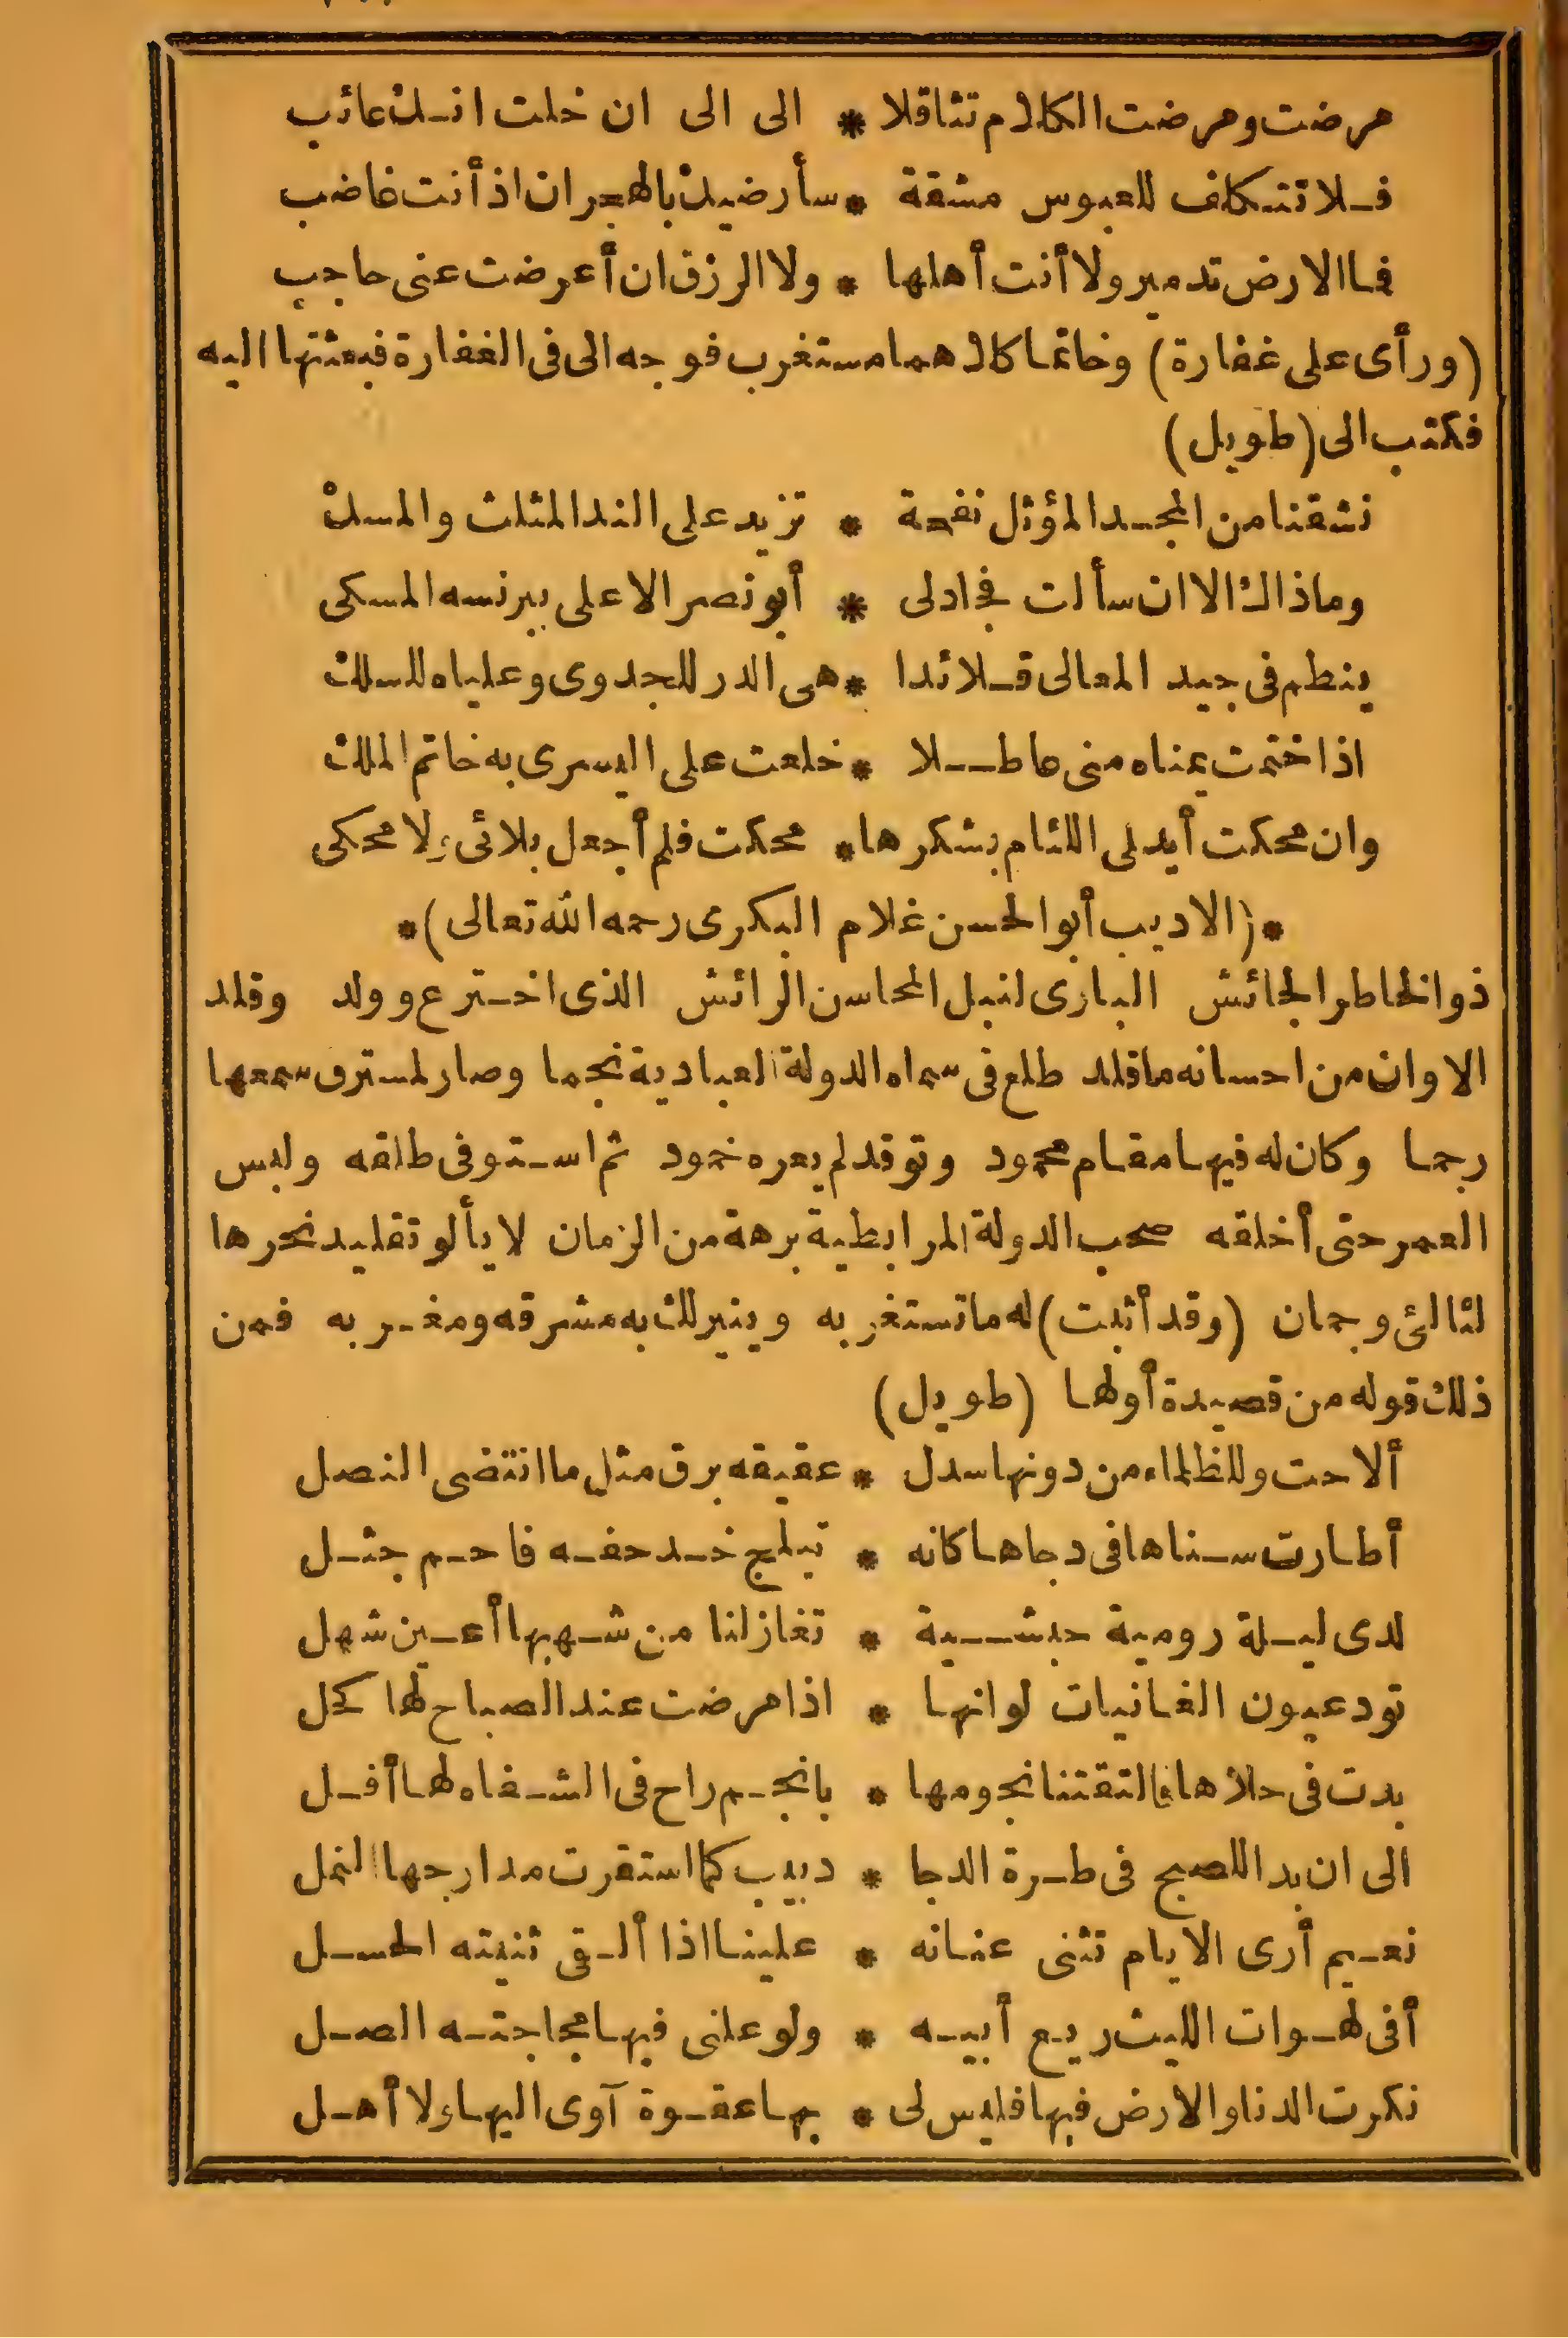 مرضت ومرضت الكلام تثاقلا * الى الى ان خلت انك عائب
فلا تتكلف للعبوس مشقة * سأرضيك بالهجران اذ أنت غاضب
فما الارض تدمير ولا أنت أهلها * ولا الرزق ان أعرضت عنى حاجب
(ورأى على غفارة) وخاتما كلاهما مستغرب فوجه الى فى الغفارة فبعثتها اليه
فكتب الى (طويل)
نشقنا من المجد المؤثل نفحة * تزيد على الند المثلث والمسك
وماذاك الا ان سألت فجادلى * أبو نصر الاعلى ببرنسه المسكى
ينظم فى جيد المعالى قلائدا * هى الدر للجدوى وعلياه للسلك
اذا ختمت يمناه منى عاطلا * خلعت على اليسرى به خاتم الملك
وان محكت أيدلى اللئام بشكرها * محكت فلم أجعل بلائى لا محكى
*(الاديب أبو الحسن غلام البكرى رحمه الله تعالى)*
ذو الخاطر الجائش البارى لنبل المحاسن الرائش الذى اخترع وولد وقلد
الاوان من احسانه ما قلد طلع فى سماء الدولة العبادية نجما وصار لمسترق سمعها
رجما وكان له فيها مقام محمود وتوقد لم يعره خمود ثم استوفى طلقه ولبس
العمر حتى أخلقه صحب الدولة المرابطية برهة من الزمان لا يألو تقليد نحرها
لئالئ وجمان (وقد أثبت) له ما تستغربه وينيرلك به مشرقه ومغربه فمن
ذلك قوله من قصيدة أولها (طويل)
ألاحت وللظلماء من دونها سدل * عقيقه برق مثل ما انتضى النصل
أطارت سناها فى دجاها كانه * تبلج خد حفه فاحم جثل
لدى ليلة رومية حبشية * تغازلنا من شهبها أعين شهل
تود عيون الغانيات لو انها * اذا مرضت عند الصباح لها كحل
بدت فى حلاها فالتقتنا نجومها * بانجم راح فى الشفاه لها أفل
الى ان بدا للصبح فى طرة الدجا * دبيب كما استقرت مدارجها النمل
نعيم أرى الايام تثنى عنانه * علينا اذا ألقى ثنيته الحسل
أفى لهوات الليث ريع أبيه * ولو علنى فيها مجاجته الصل
نكرت الدنا والارض فيها فليس لى * بها عقوة آوى اليها ولا أهل